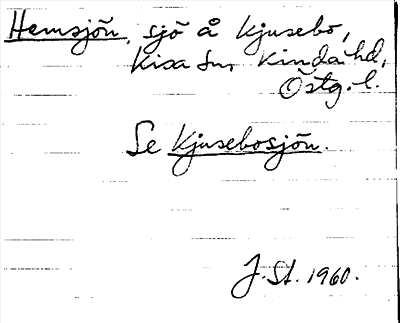 Hemsjön, sjö å Kjusebo,
Kisa sn, Kinda hd,
Östg. l.
Se Kjusebosjön.
J. St. 1960.